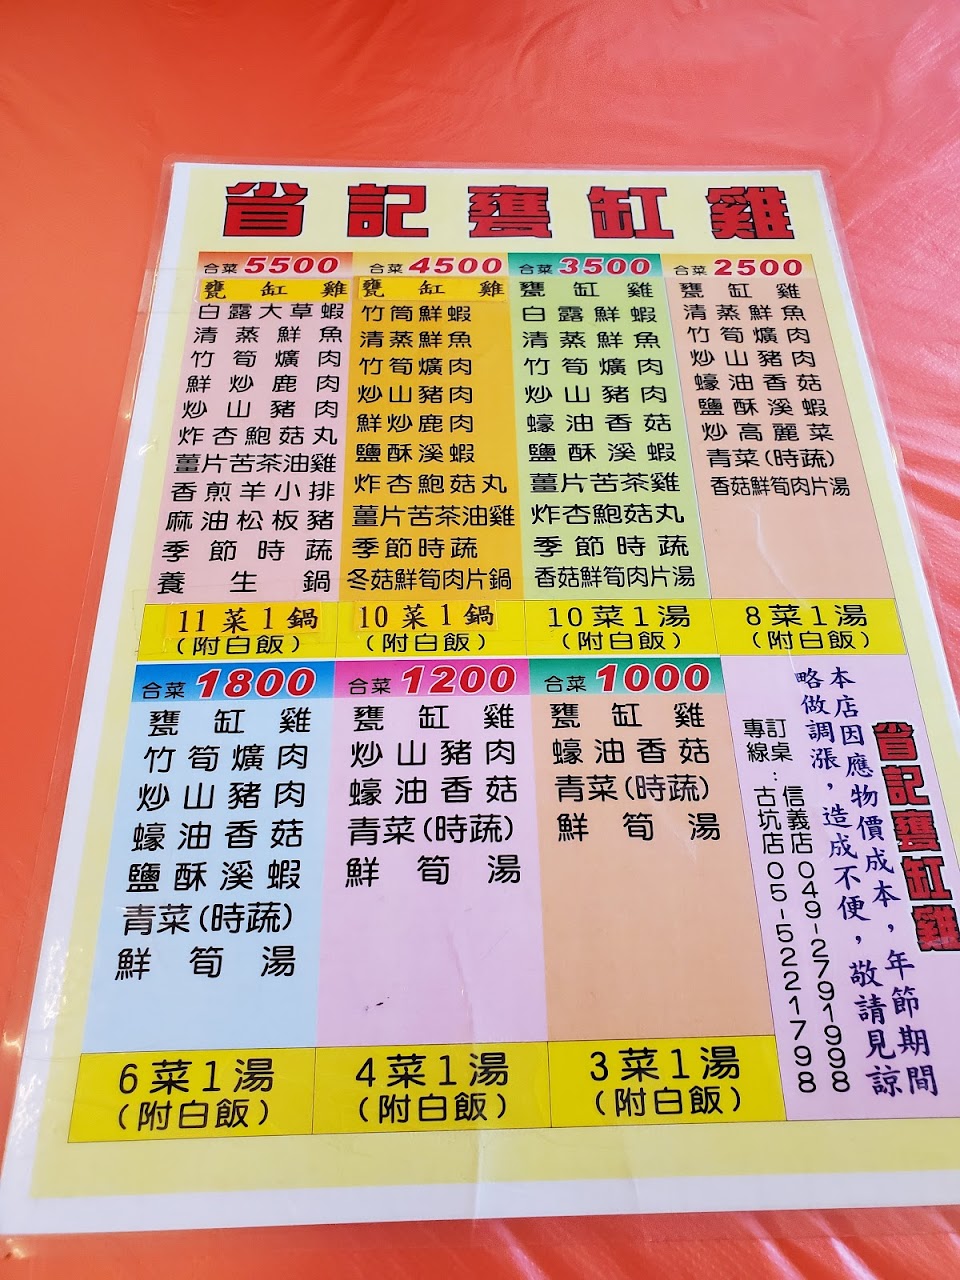 省記甕缸雞
合菜5500
甕缸雞
白露大草蝦
清蒸鮮魚
竹筍爌肉
鮮炒鹿肉
炒山豬肉
炸杏鮑菇丸
薑片苦茶油雞
香煎羊小排
麻油松板豬
季節時蔬
養生鍋
11菜1鍋
(附白飯)
合菜4500
甕缸雞
竹筒鮮蝦
清蒸鮮魚
竹筍爌肉
炒山豬肉
鮮炒鹿肉
鹽酥溪蝦
炸杏鮑菇丸
薑片苦茶油雞
季節時蔬
冬菇鮮筍肉片鍋
10菜1鍋
(附白飯)
合菜3500
甕缸雞
白露鮮蝦
清蒸鮮魚
竹筍爌肉
炒山豬肉
蠔油香菇
鹽酥溪蝦
薑片苦茶雞
炸杏鮑菇丸
季節時蔬
香菇鮮筍肉片湯
10菜1湯
(附白飯)
合菜2500
甕缸雞
清蒸鮮魚
竹筍爌肉
炒山豬肉
蠔油香菇
鹽酥溪蝦
炒高麗菜
青菜(時蔬)
香菇鮮筍肉片湯
8菜1湯
(附白飯)
合菜1800
甕缸雞
竹筍爌肉
炒山豬肉
蠔油香菇
鹽酥溪蝦
青菜(時蔬)
鮮筍湯
6菜1湯
(附白飯)
合菜1200
甕缸雞
炒山豬肉
蠔油香菇
青菜(時蔬)
鮮筍湯
4菜1湯
(附白飯)
合菜1000
甕缸雞
蠔油香菇
青菜(時蔬)
鮮筍湯
3菜1湯
(附白飯)
省記甕缸雞
本店因應物價成本，年節期間
略做調漲，造成不便，敬請見諒
訂桌專線：信義店049-2791998
古坑店05-5221798